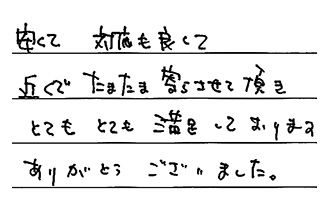 安くて 対応も良くて
近くで たまたま 寄らさせて頂き
とても とても 満足しております
ありがとう ございました。